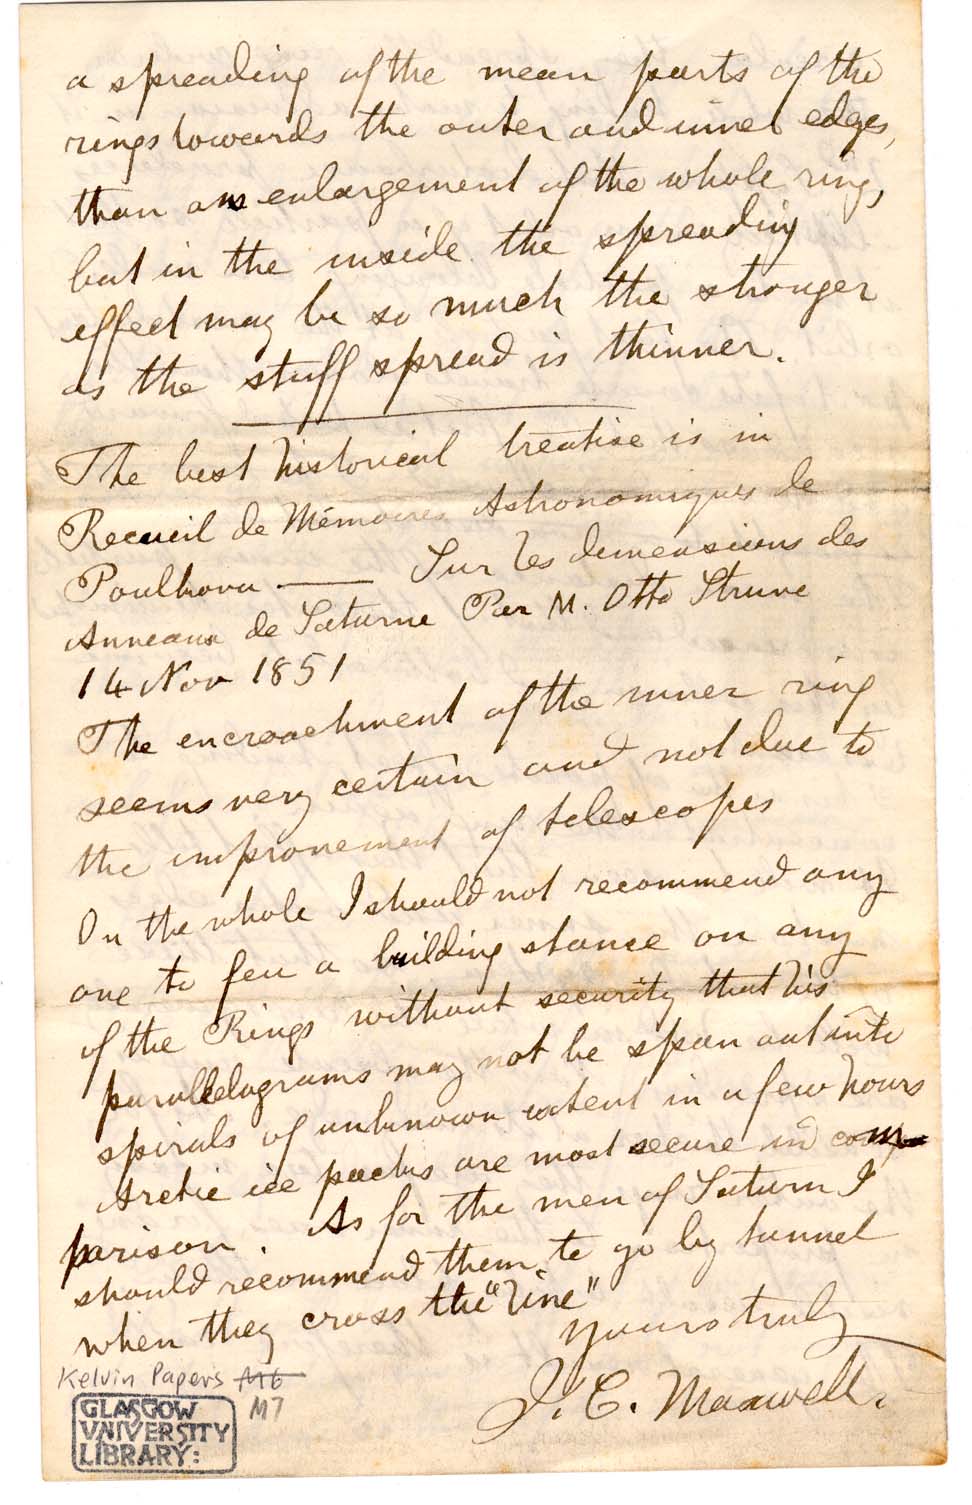 a spreading of the mean parts of the
rings towards the outer and inner edges,
than an enlargement of the whole ring,
but in the inside the spreading
effect may be so much the stronger
as the stuff spread is thinner.
The best historical treatise is in
Recueil de Mémoires Astronomiques de
Poulkova — Sur les dimensions des
Anneaux de Saturne Par M. Otto Struve
14 Nov 1851
The encroachment of the inner ring
seems very certain and not due to
the improvement of telescopes
On the whole I should not recommend any
one to feu a building stance on any
of the Rings without security that his
parallelograms may not be spun out into
spirals of unknown extent in a few hours
Arctic ice packs are most secure in com
parison. As for the men of Saturn I
should recommend them to go by tunnel
when they cross the "line"
Yours truly
J. C. Maxwell.
Kelvin Papers M6
M7
GLASGOW
UNIVERSITY
LIBRARY: